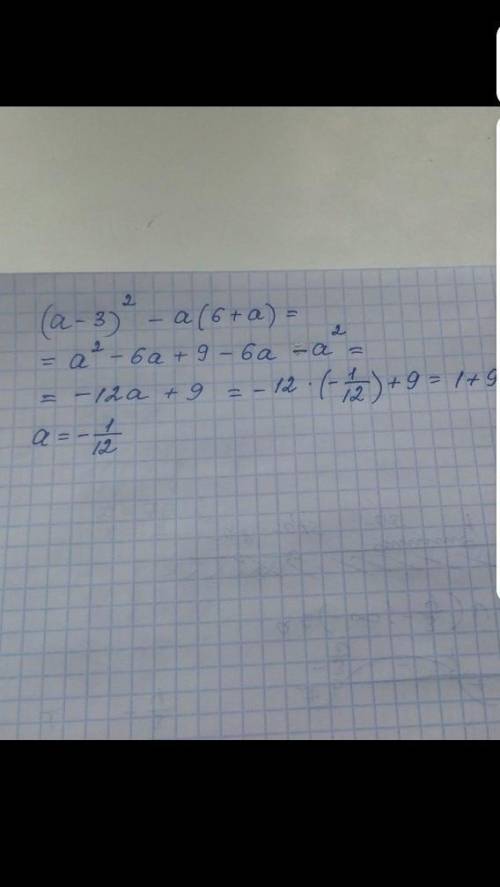 (a - 3)² - a(6 + a) =
= a² - 6a + 9 - 6a - a² =
= -12a + 9 = -12 · (-1/12) + 9 = 1 + 9
a = -1/12